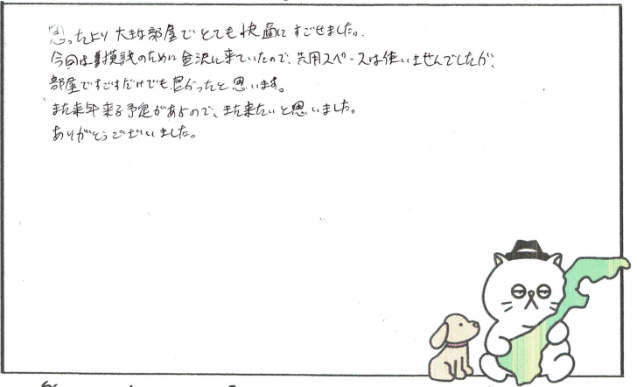 思ったより大きな部屋でとても快適にすごせました。
今回は のために金沢に来ていたので、共用スペースは使いませんでしたが、
部屋ですごすだけでも良かったと思います。
また来年来る予定があるので、また来たいと思いました。
ありがとうございました。